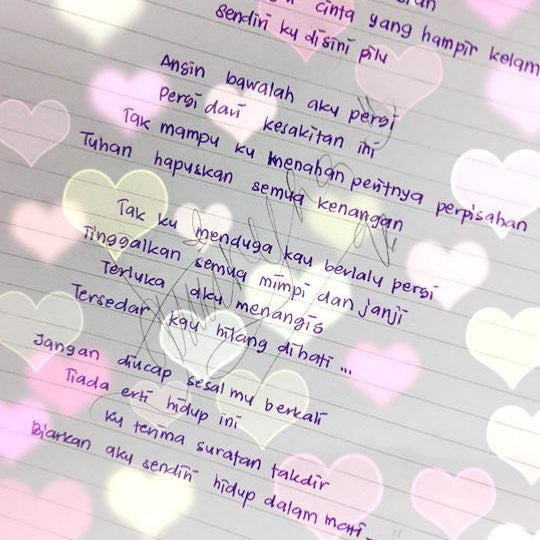 cinta yang hampir kelam
sendiri ku disini pilu
Angin bawalah aku pergi
Pergi dari kesakitan ini
Tak mampu ku menahan peritnya perpisahan
Tuhan hapuskan semua kenangan
Tak ku menduga kau berlalu pergi
Tinggalkan semua mimpi dan janji
Terluka aku menangis
Tersedar kau hilang dihati ...
Jangan diucap sesal mu berkali
Tiada erti hidup ini
Ku terima suratan takdir
Biarkan aku sendiri hidup dalam mati